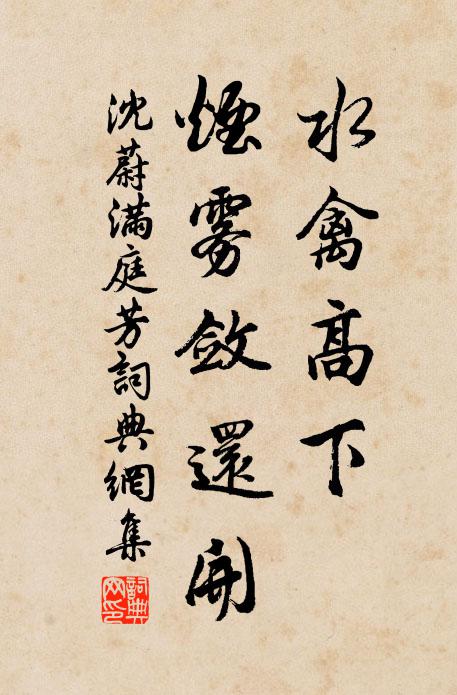 水禽高下
煙雾斂還開
沈蔚滿庭芳詞典網集
詞典網印